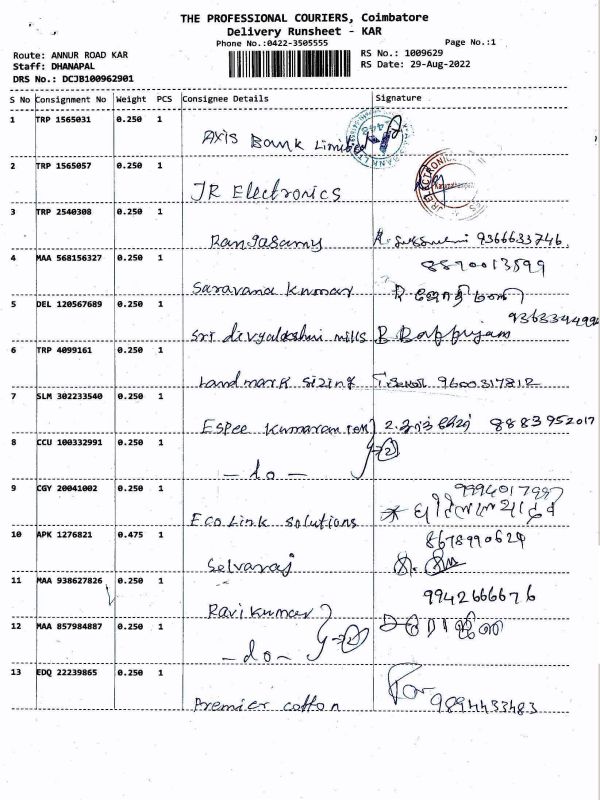 THE PROFESSIONAL COURIERS, Coimbatore
Delivery Runsheet - KAR
Phone No.:0422-3505555 Page No.:1
Route: ANNUR ROAD KAR RS No.: 1009629
Staff: DHANAPAL RS Date: 29-Aug-2022
DRS No.: DCJB100962901
S No Consignment No Weight PCS Consignee Details Signature
1 TRP 1565031 0.250 1
AXIS Bank Limited
2 TRP 1565057 0.250 1
JR Electronics
3 TRP 2540308 0.250 1
Rangasamy 9366633746
4 MAA 568156327 0.250 1
8890013599
Saravana Kumar
5 DEL 120567689 0.250 1
Sri divyalakshmi mills B
6 TRP 4099161 0.250 1
Landmark Sizing 9600317812
7 SLM 302233540 0.250 1
Espee Kumaran 8883952017
8 CCU 100332991 0.250 1
- do -
9 CGY 20041002 0.250 1
Eco Link Solutions
10 APK 1276821 0.475 1
Selvaraj
11 MAA 938627826 0.250 1
9942666676
Ravikumar
12 MAA 857984887 0.250 1
- do -
13 EDQ 22239865 0.250 1
Premier cotton 9894433483